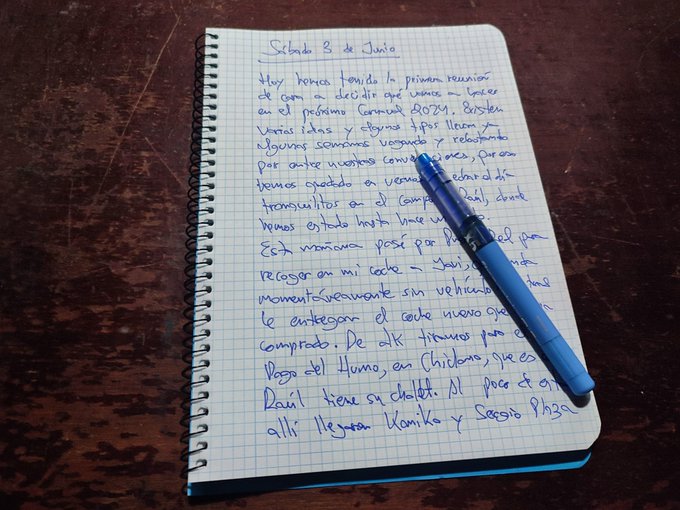 Sábado 3 de Junio
Hoy hemos tenido la primera reunión
de cara a decidir qué vamos a hacer
en el próximo Carnaval 2024. Existen
varias ideas y algunos tipos llevan ya
algunas semanas vagando y rebotando
por entre nuestras conversaciones, por eso
hemos quedado en echar el día
tranquilitos en el Raúl, donde
hemos estado hasta hace
Esta mañana pasé por para
recoger en mi coche a Javi,
momentáneamente sin vehículo
le entregan el coche nuevo que
comprado. De allí tiramos para el
Pago del Humo, en Chiclana, que es
Raúl tiene su chalet. Al poco de
allí llegaron Kamiko y Sergio Plaza